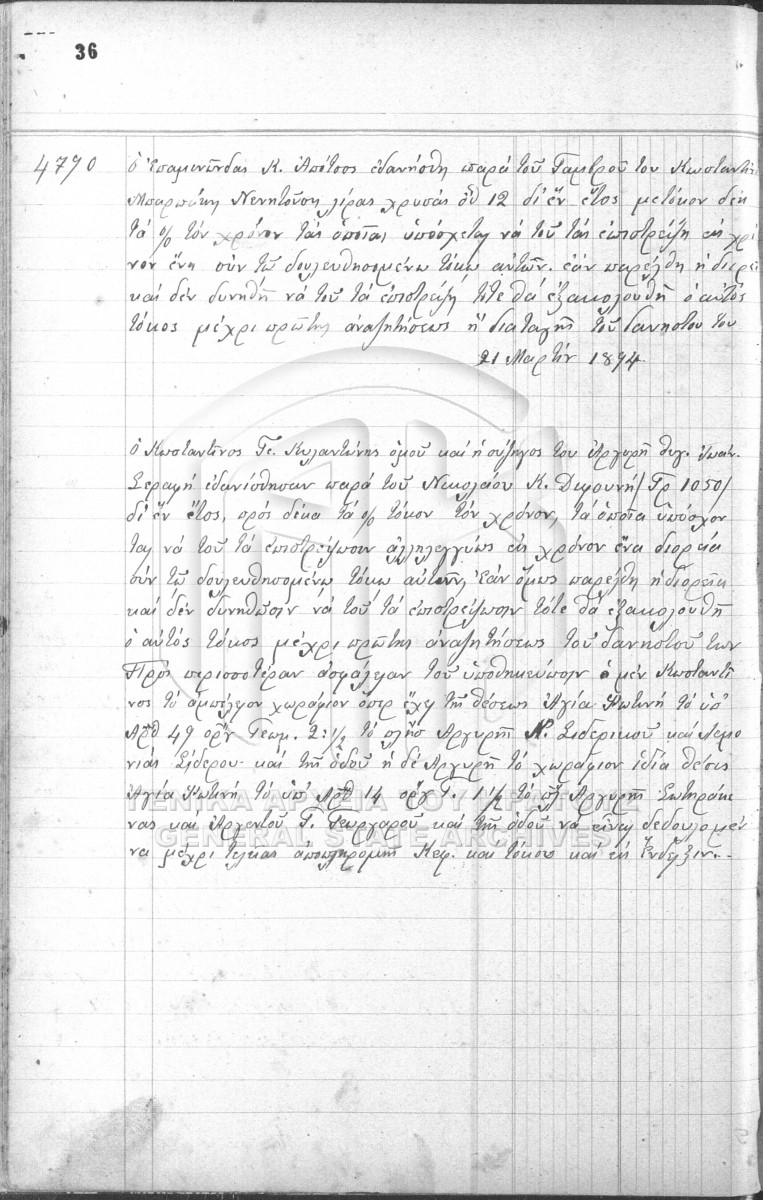 36
4790
ὁ Ἐπαμινῶνδας Κ. Ἀπότσος ἐδανήσθη παρὰ τοῦ Γαμβροῦ του Κωσταντῆ
Μπαρπάκη Νενητούση λίρας χρυσᾶς ὀθ 12 δι' ἕν ἔτος με τόκον δέκ
τὰ % τὸν χρόνον τὰς ὁποίας ὑπόσχεται νὰ τοῦ τὰς ἐπιστρέψῃ εἰς χρό
νον ἕνα σὺν τῷ δουλευθησομένῳ τόκῳ αὐτῶν. ἐὰν παρέλθῃ ἡ διορεί
καὶ δὲν δυνηθῇ νὰ τοῦ τὰ ἐπιστρέψῃ τότε θὰ ἐξακολουθῇ ὁ αὐτὸς
τόκος μέχρι πρώτης ἀναζητήσεως ἢ διαταγῆς τοῦ δανηστοῦ του
21 Μαρτίυ 1894
ὁ Κωσταντῖνος Γε. Κυλαντώνης ὁμοῦ καὶ ἡ σύζηγος του Ἀργυρῆ θυγ. Ἰωάν.
Σεραφὴ ἐδανίσθησαν παρὰ τοῦ Νικολάου Κ. /Γρ 1050/
δι' ἕν ἔτος, πρὸς δέκα τὰ % τόκον τὸν χρόνον, τὰ ὁποῖα ὑπόσχον
ται νὰ τοῦ τὰ ἐπιστρέψωσιν ἀλληλεγγύως εἰς χρόνον ἕνα διορεία
σὺν τῷ δουλευθησομένῳ τόκῳ αὐτῶν, Ἐὰν ὅμως παρέλθῃ ἡ διορεία
καὶ δὲν δυνηθῶσιν νὰ τοῦ τὰ ἐπιστρέψωσιν τότε θὰ ἐξακολουθῇ
ὁ αὐτὸς τόκος μέχρι πρώτης ἀναζητήσεως τοῦ δανηστοῦ των
Πρὸς περισσοτέραν ἀσφάλειαν τοῦ ὑποθηκεύουσιν ὁ μὲν Κωσταντῖ
νος τὸ ἀμπέλιον χωράφιον ὅπερ ἔχει τῆς θέσεως Ἁγία Φωτινὴ τὸ ὑπ'
Ἀρθ 49 ὀργ Γεωμ. 2:½ τὸ πλησ Ἀργυρῆς Ν. Σιδερικοῦ καὶ Λεμο
νιᾶς Σίδερου καὶ τῆς ὁδοῦ ἡ δὲ Ἀργυρῆ τὸ χωράφιον ἰδία θέσις
Ἁγία Φωτινὴ τὸ ὑπ' Ἀρθ 14 ὀργ Γ. 1½ τὸ πλ Ἀργυρῆς Σωτηράκι
νας καὶ Ἀργεντοῦ Γ. Γεωργαροῦ καὶ τῆς ὁδοῦ νὰ εἶναι δεδουλομέ
να μέχρι τελείας ἀποπληρομῆς Κεφ. καὶ τόκου καὶ εἰς Ἔνδειξιν.-
ΓΕΝΙΚΑ ΑΡΧΕΙΑ ΤΟΥ ΚΡΑΤΟΥΣ
GENERAL STATE ARCHIVES